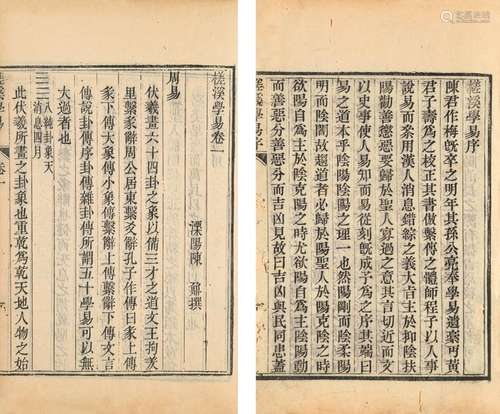 槎溪學易序
陳君作梅旣卒之明年其孫公亮奉學易遺稾丐黄
君子壽爲之校正其書倣繫傳之體師程子以人事
說易而桼用漢人消息錯綜之義大旨主於抑陰扶
陽勸善懲惡要歸於聖人寡過之意其言切近而文
以史事使人易知而易從刻旣成予爲之序其端曰
易之道本乎陰陽陰陽之理一也然陽剛而陰柔陽
明而陰闇故趨道者必歸於陽聖人於陽克陰之時
欲陽自爲主於陰克陽之時尤欲陽自爲主陰陽動
而善惡分善惡分而吉凶見故曰吉凶與民同患蓋
槎溪學易序
槎溪學易卷一
溧陽陳 鼐撰
周易
伏羲畫六十四卦之象以備三才之道文王拘羑
里繫彖辭周公居東繫爻辭孔子作傳曰彖上傳
彖下傳大象傳小象傳繫辭上傳繫辭下傳文言
傳說卦傳序卦傳雜卦傳所謂五十學易可以無
大過者也
八純卦象天
消息四月
此伏羲所畫之卦象也重乾爲乾天地人物之始
槎溪學易 卷一